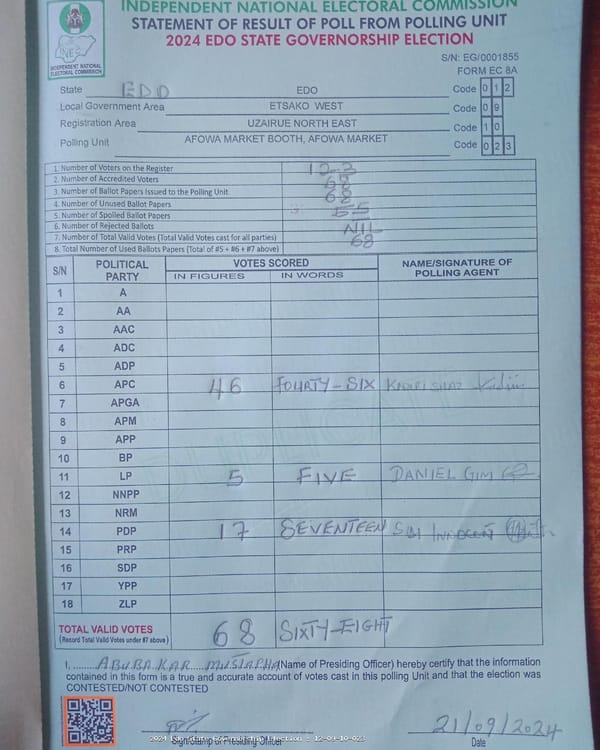 INDEPENDENT NATIONAL ELECTORAL COMMISSION
STATEMENT OF RESULT OF POLL FROM POLLING UNIT
2024 EDO STATE GOVERNORSHIP ELECTION
INDEPENDENT NATIONAL ELECTORAL COMMISSION
S/N: EG/0001855
FORM EC 8A
State EDO EDO Code 0 1 2
Local Government Area ETSAKO WEST Code 0 9
Registration Area UZAIRUE NORTH EAST Code 1 0
Polling Unit AFOWA MARKET BOOTH, AFOWA MARKET Code 0 2 3
1. Number of Voters on the Register 123
2. Number of Accredited Voters 68
3. Number of Ballot Papers Issued to the Polling Unit 68
4. Number of Unused Ballot Papers 55
5. Number of Spoiled Ballot Papers
6. Number of Rejected Ballots NIL
7. Number of Total Valid Votes (Total Valid Votes cast for all parties) 68
8. Total Number of Used Ballots Papers (Total of #5 + #6 + #7 above)
S/N POLITICAL PARTY VOTES SCORED NAME/SIGNATURE OF POLLING AGENT
IN FIGURES IN WORDS
1 A
2 AA
3 AAC
4 ADC
5 ADP
6 APC 46 FOURTY-SIX
7 APGA
8 APM
9 APP
10 BP
11 LP 5 FIVE DANIEL GIM
12 NNPP
13 NRM
14 PDP 17 SEVENTEEN INNOCENT
15 PRP
16 SDP
17 YPP
18 ZLP
TOTAL VALID VOTES 68 SIXTY-EIGHT
(Record Total Valid Votes under #7 above)
I, ABUBAKAR MUSTAPHA (Name of Presiding Officer) hereby certify that the information
contained in this form is a true and accurate account of votes cast in this polling Unit and that the election was
CONTESTED/NOT CONTESTED
21/09/2024
Sign/Stamp of Presiding Officer Date